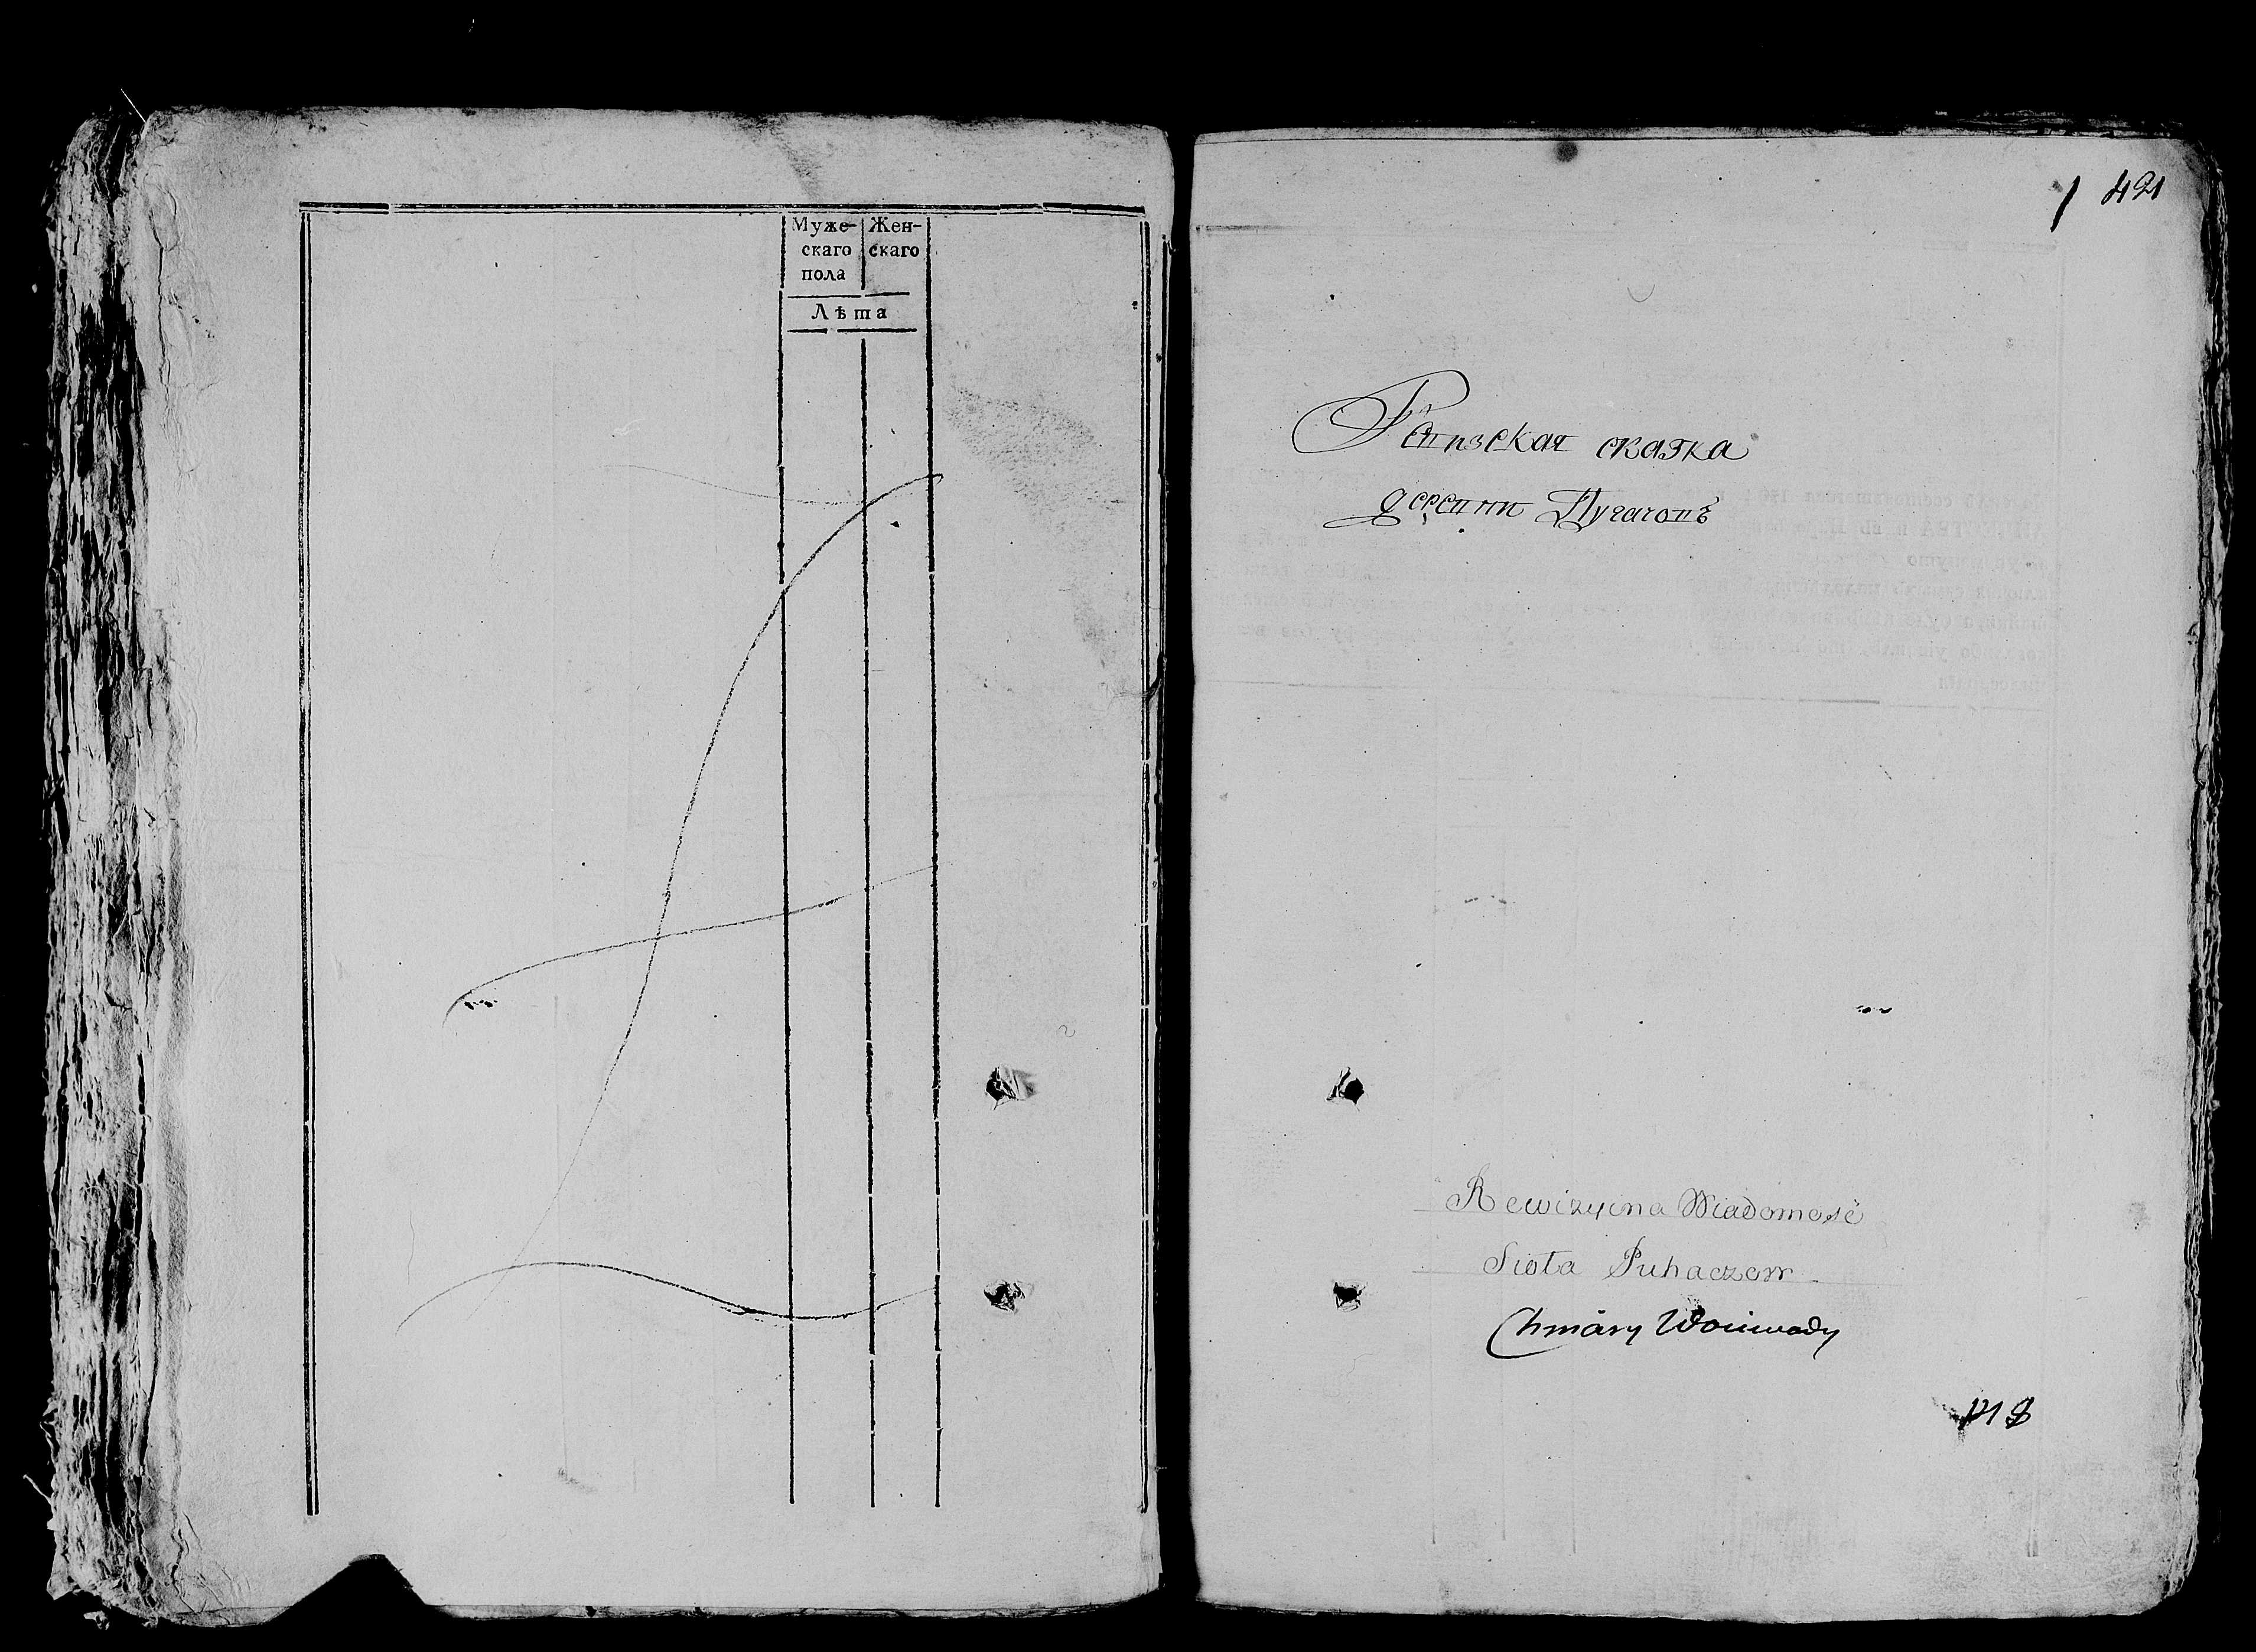 Муже- Жен-
скаго скаго
пола
Лѣта
421
Ревизская сказка
деревни Пугачовъ
Rewizyina Wiadomość
Sioła Puhaczow
Chmáry Woiiwody